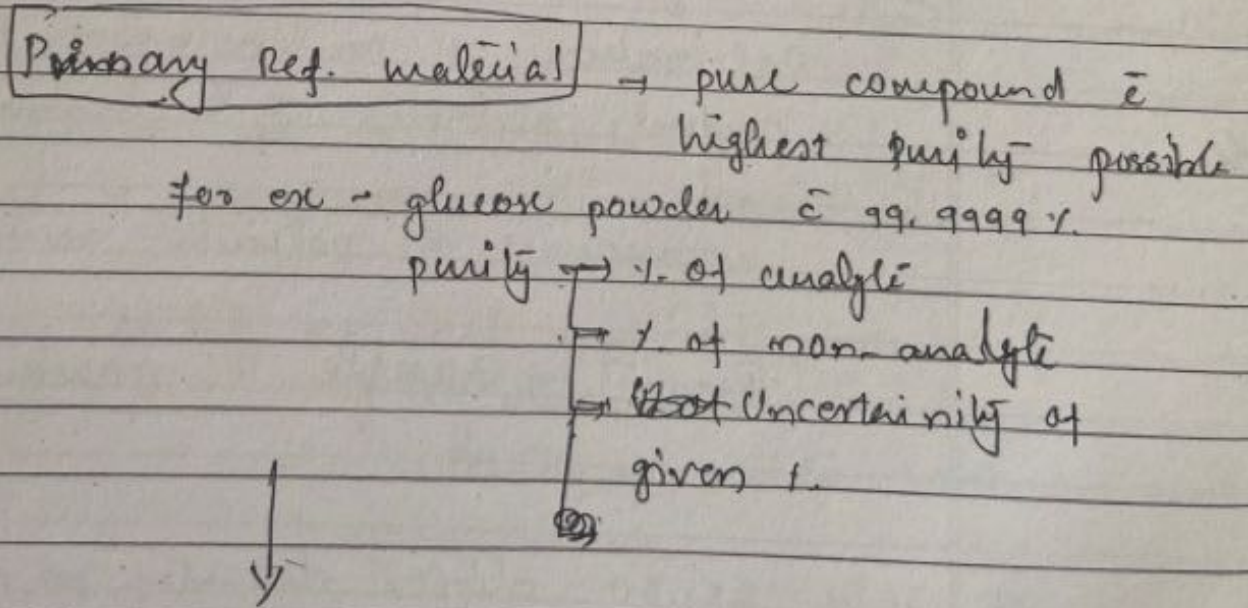 Primary Ref. material → pure compound c̄
highest purity possible
for ex - glucose powder c̄ 99.9999 %
purity → % of analyte
→ % of non-analyte
→ Uncertainity of
given %